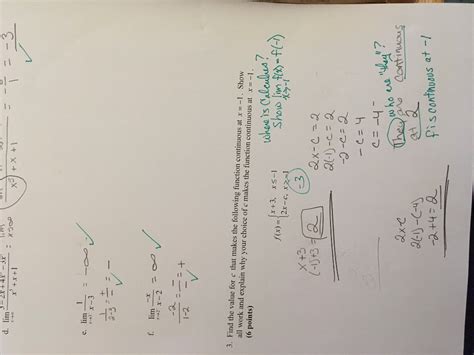 d. lim 3-2x+4x²-3x³
x→∞ x³+x+1
x³+x+1
= -3
1
= -3
e. lim 1 = -∞
x-3
f. lim -x = ∞
x-2
-2 = - = +
1-2
3. Find the value for c that makes the following function continuous at x = -1. Show
all work and explain why your choice of c makes the function continuous at x = -1.
(6 points)
f(x) = { x+3, x≤-1
2x-c, x>-1
=3
Where is Calculus?
Show lim f(x) = f(-1)
x→-1
x+3
(-1)+3 = 2
2x-c=2
2(-1)-c=2
-2-c=2
-c=4
c=-4
2x-c
2(-1)-(-4)
-2+4=2
They are continuous
at 2
who are "they"?
f is continuous at -1